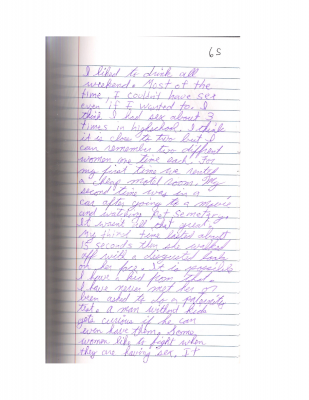 65
I liked to drink all
weekend. Most of the
time, I couldn't have sex
even if I wanted to. I
think I had sex about 3
times in highschool. I think
it is close to two but I
can remember two different
women one time each. For
my first time we rented
a cheap motel room. My
second time was in a
car after going to a movie
and watching Pet Sematary.
It wasn't all that great.
My third time lasted about
15 seconds then she walked
off with a disgusted look
on her face. It is possible
I have a kid from that
I have never met her or
been asked to do a paternity
that a man without kids
gets curious if he can
even have them. Some
women like to fight when
they are having sex. It